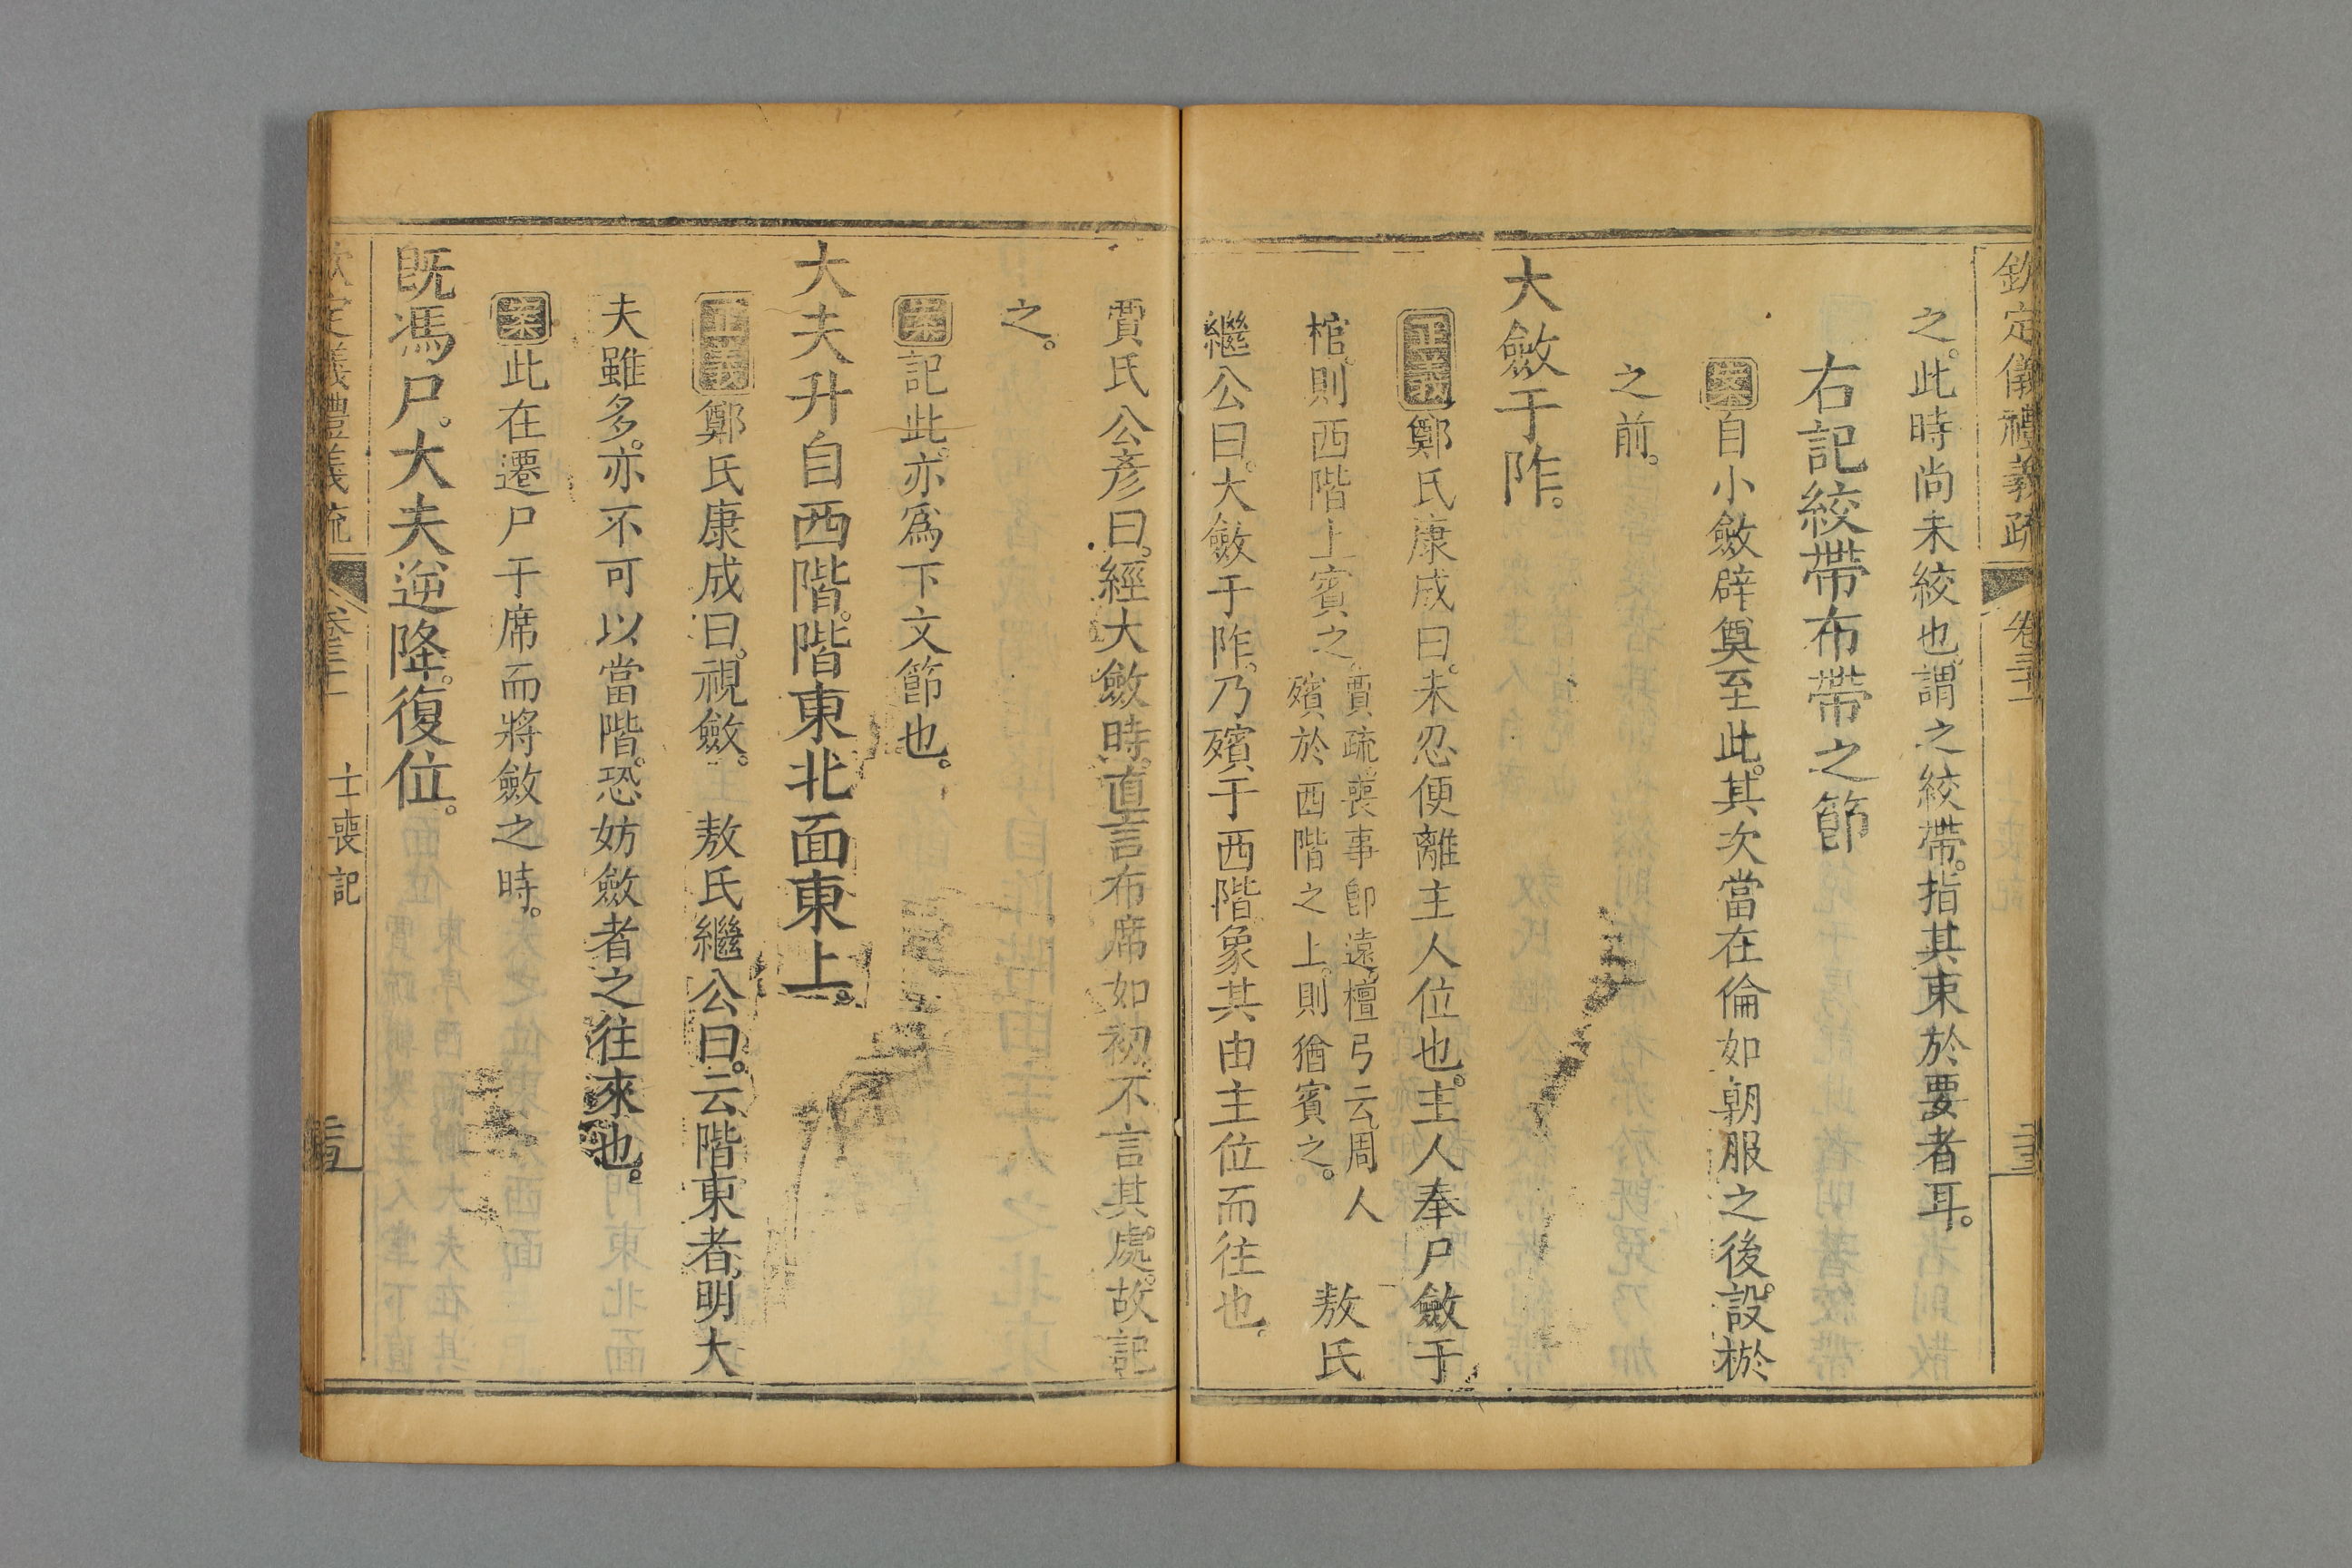 欽定儀禮義疏 卷三十一
之。此時尚未絞也。謂之絞帶。指其束於要者耳。
右記絞帶布帶之節
案自小斂辟奠至此。其次當在倫如朝服之後。設棜
之前。
大斂于阼。
正義鄭氏康成曰。未忍便離主人位也。主人奉尸斂于
棺。則西階上賓之。賈疏。喪事卽遠。檀弓云。周人殯於西階之上。則猶賓之。 敖氏
繼公曰。大斂于阼。乃殯于西階。象其由主位而往也。
賈氏公彥曰。經大斂時。直言布席如初。不言其處。故記
之。
案記此。亦爲下文節也。
大夫升自西階。階東北面東上。
正義鄭氏康成曰。視斂。 敖氏繼公曰。云階東者。明大
夫雖多。亦不可以當階。恐妨斂者之往來也。
案此在遷尸于席而將斂之時。
既馮尸。大夫逆降。復位。
士喪記